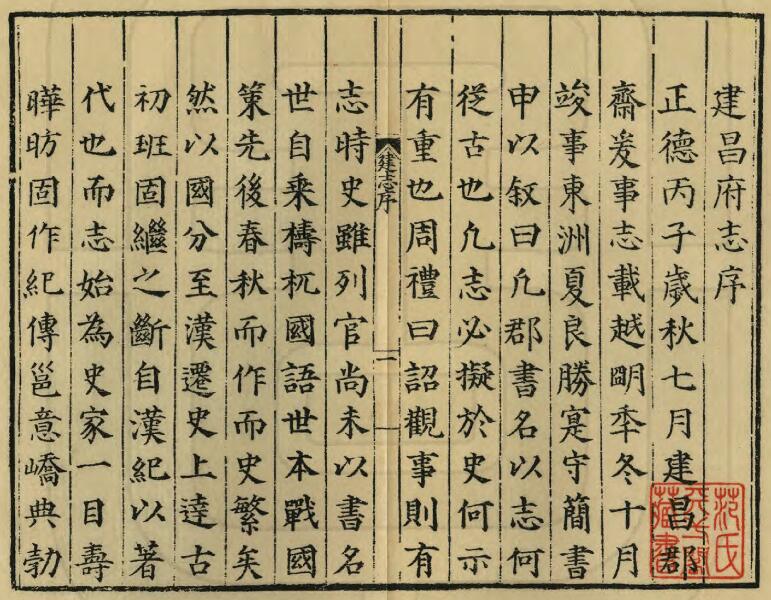 建昌府志序
正德丙子歲秋七月建昌郡
齋爰事志載越朙秊冬十月
竣事東洲夏良勝寔守簡書
申以敘曰凡郡書名以志何
從古也凡志必擬於史何示
有重也周禮曰詔觀事則有
建志序
一
志時史雖列官尚未以書名
世自乘檮杌國語世本戰國
策先後春秋而作而史繁矣
然以國分至漢遷史上逹古
初班固繼之斷自漢紀以著
代也而志始為史家一目壽
曄昉固作紀傳邕意嶠典勃
范氏
天一閣
藏書